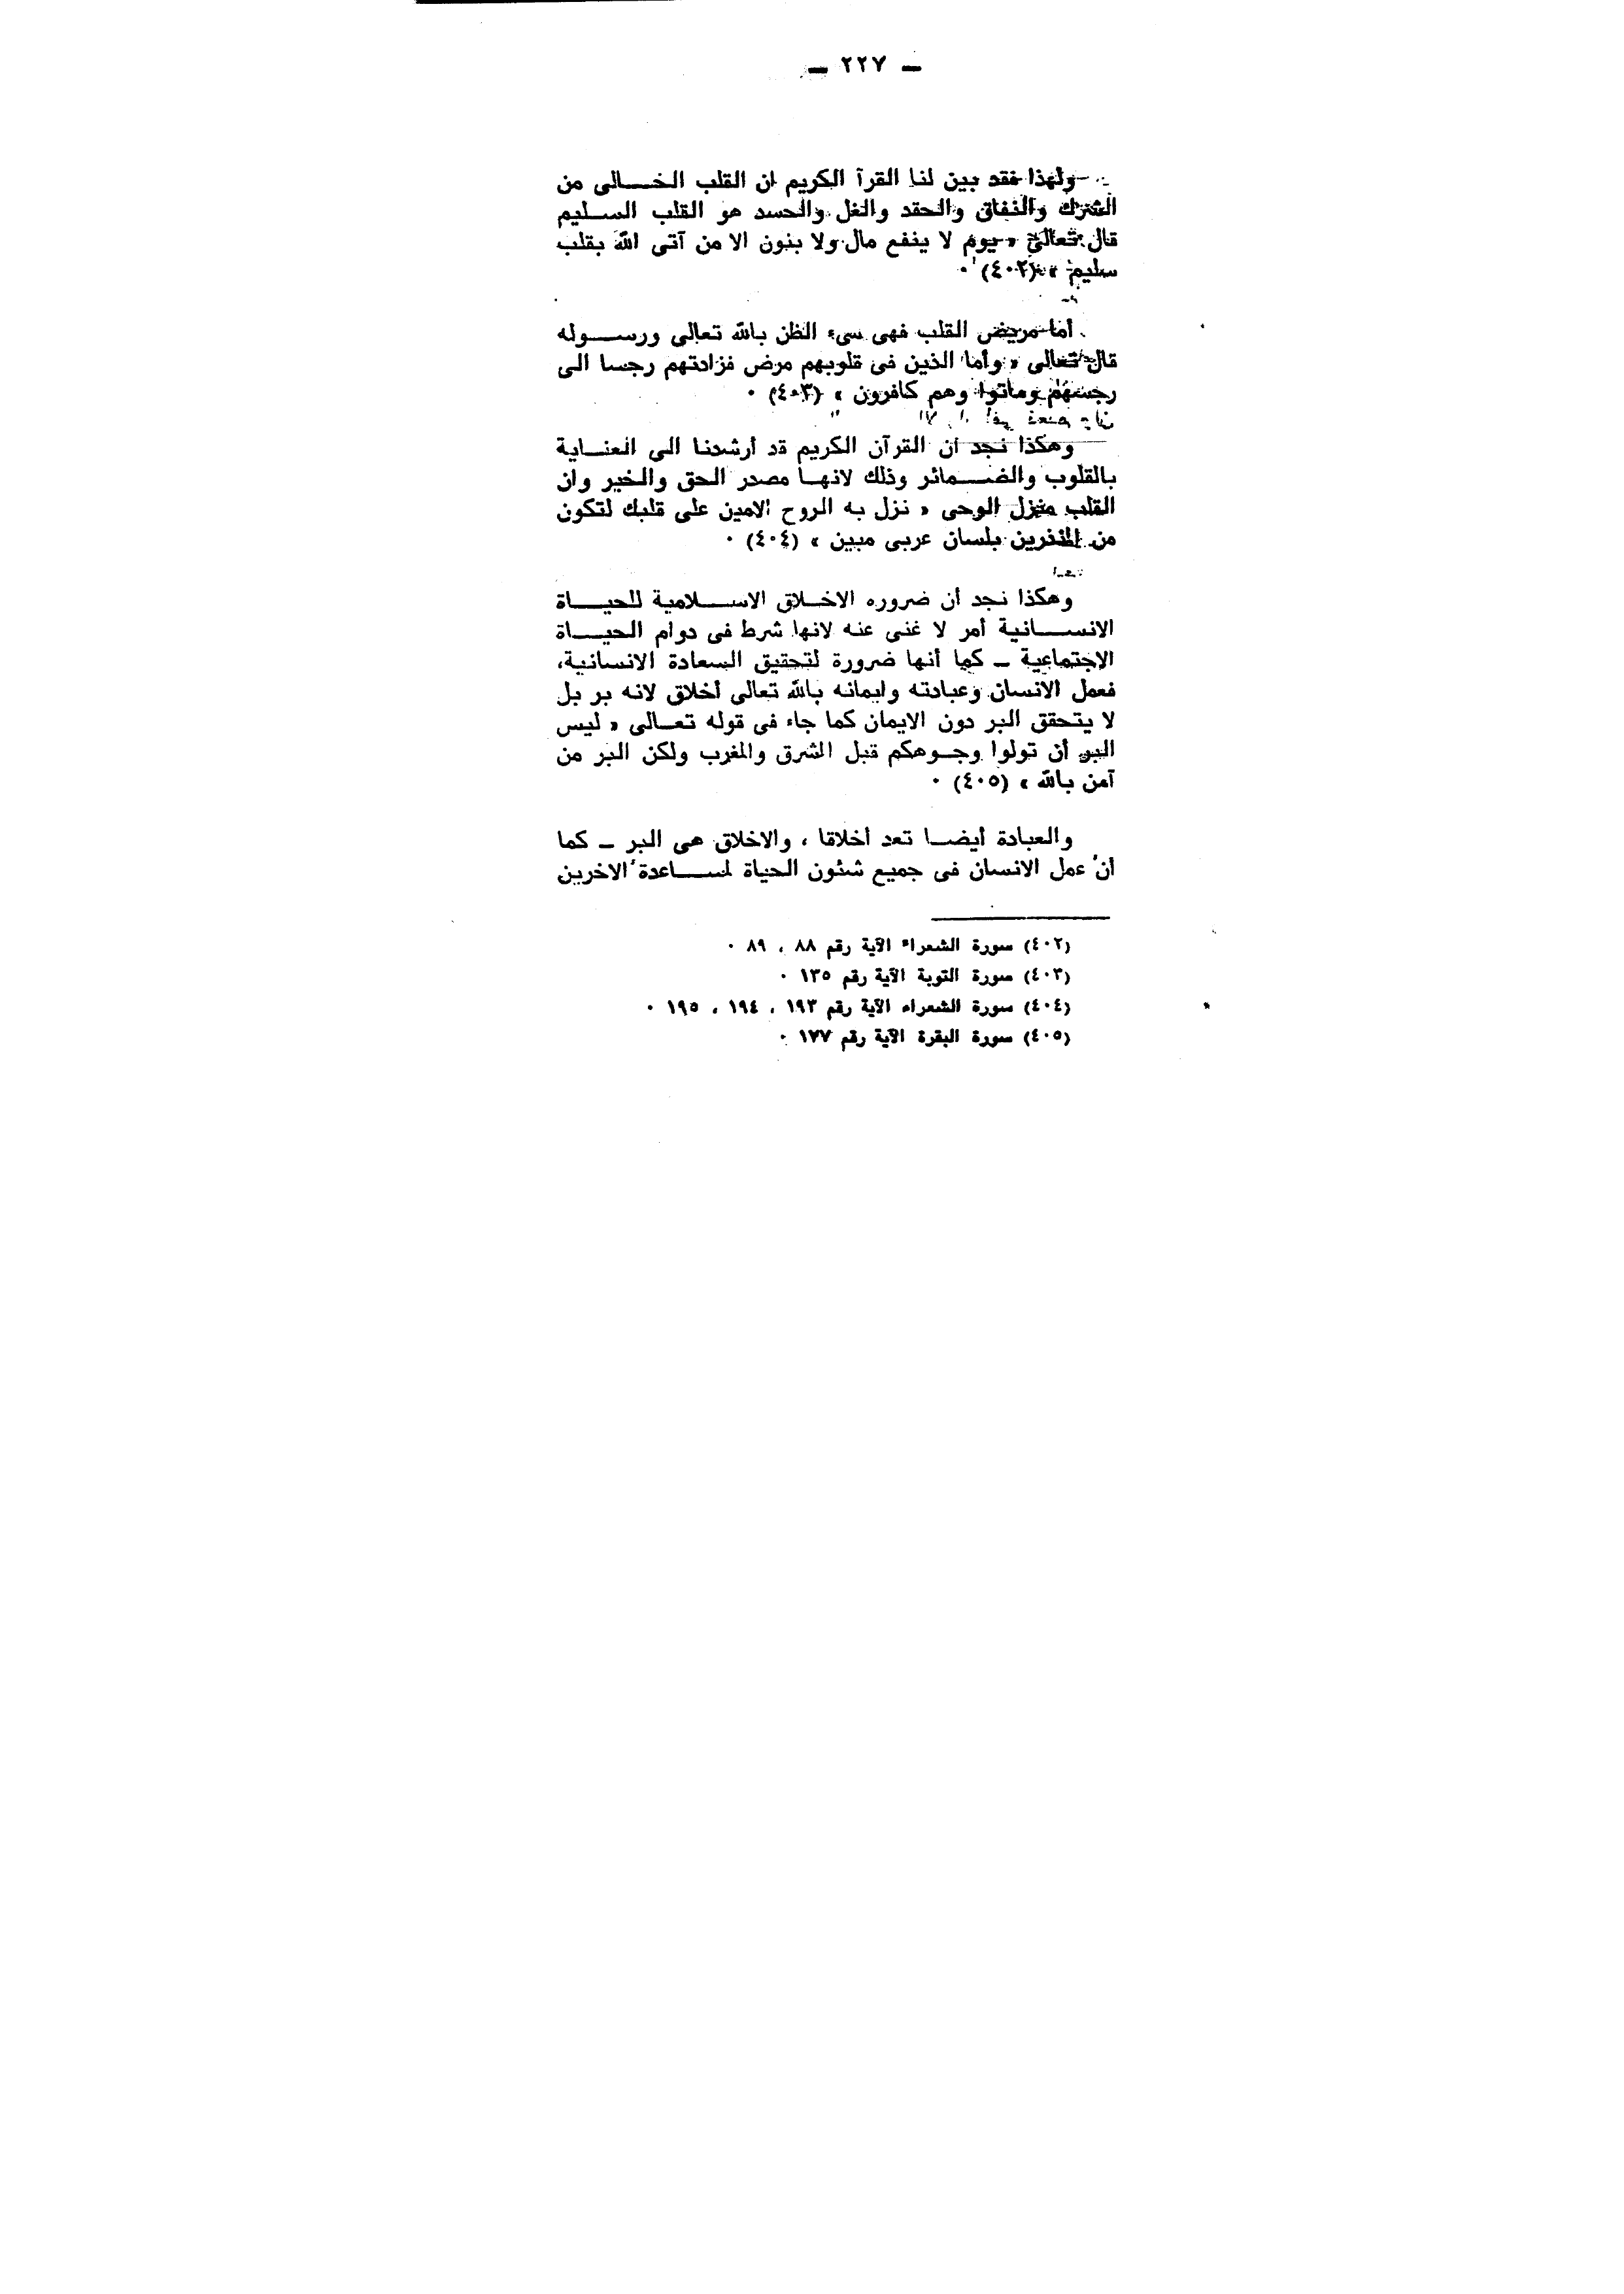 — ٢٢٧ —
ولهذا فقد بين لنا القرآ الكريم ان القلب الخالى من
الشرك والنفاق والحقد والغل والحسد هو القلب السليم
قال تعالى « يوم لا ينفع مال ولا بنون الا من آتى الله بقلب
سليم » (٤٠٢) ٠
أما مريض القلب فهى سىء الظن بالله تعالى ورسوله
قال تعالى « وأما الذين فى قلوبهم مرض فزادتهم رجسا الى
رجسهم وماتوا وهم كافرون » (٤٠٣) ٠
وهكذا نجد ان القرآن الكريم قد أرشدنا الى العناية
بالقلوب والضمائر وذلك لانها مصدر الحق والخير وان
القلب منزل الوحى « نزل به الروح الامين على قلبك لتكون
من المنذرين بلسان عربى مبين » (٤٠٤) ٠
وهكذا نجد أن ضروره الاخلاق الاسلامية للحياة
الانسانية أمر لا غنى عنه لانها شرط فى دوام الحياة
الاجتماعية – كما أنها ضرورة لتحقيق السعادة الانسانية،
فعمل الانسان وعبادته وايمانه بالله تعالى أخلاق لانه بر بل
لا يتحقق البر دون الايمان كما جاء فى قوله تعالى « ليس
البر أن تولوا وجوهكم قبل المشرق والمغرب ولكن البر من
آمن بالله » (٤٠٥) ٠
والعبادة أيضا تعد أخلاقا ، والاخلاق هى البر – كما
أن عمل الانسان فى جميع شئون الحياة لمساعدة الاخرين
(٤٠٢) سورة الشعراء الآية رقم ٨٨ ، ٨٩ ٠
(٤٠٣) سورة التوبة الآية رقم ١٣٥ ٠
(٤٠٤) سورة الشعراء الآية رقم ١٩٣ ، ١٩٤ ، ١٩٥ ٠
(٤٠٥) سورة البقرة الآية رقم ١٧٧ ٠